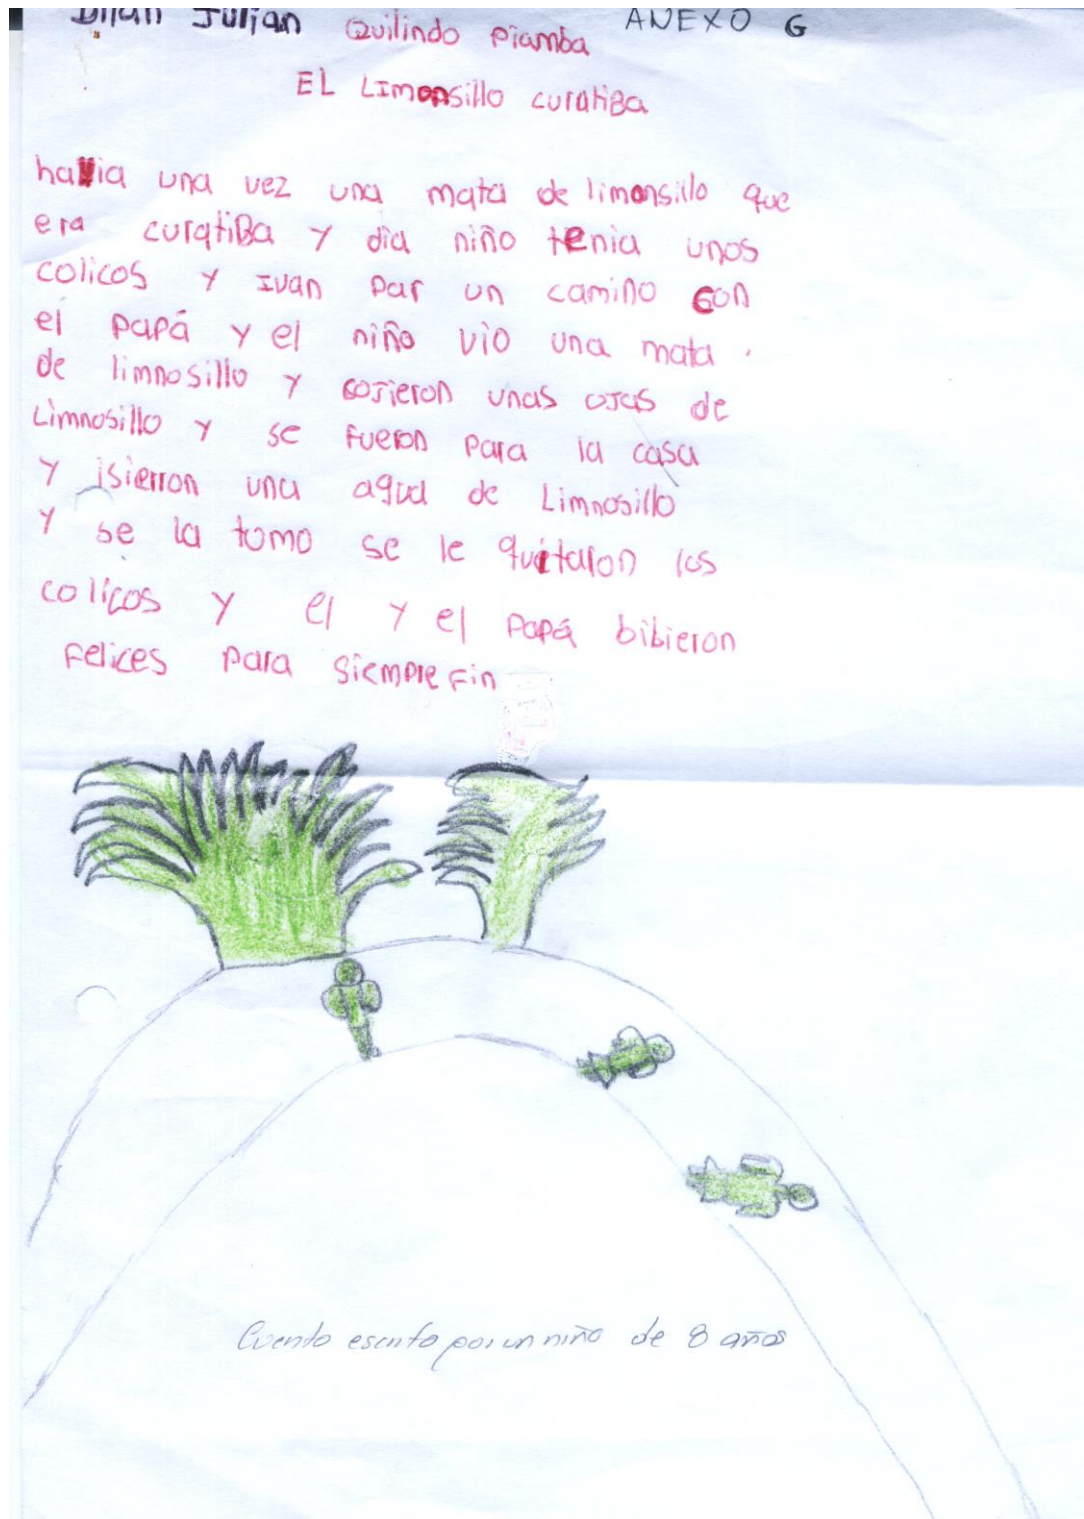 Dilan Julian Quilindo Piamba ANEXO G
EL Limonsillo curatiBa
havia una vez una mata de limonsillo que
era curatiBa y dia niño tenia unos
colicos y Ivan par un camino con
el papá y el niño vio una mata
de limnosillo y cojieron unas ojas de
Limnosillo y se fueron para la casa
y isierron una agua de Limnosillo
y se la tomo se le quitaron los
colicos y el y el papá bibieron
felices para siempre Fin
Cuento escrito por un niño de 8 años